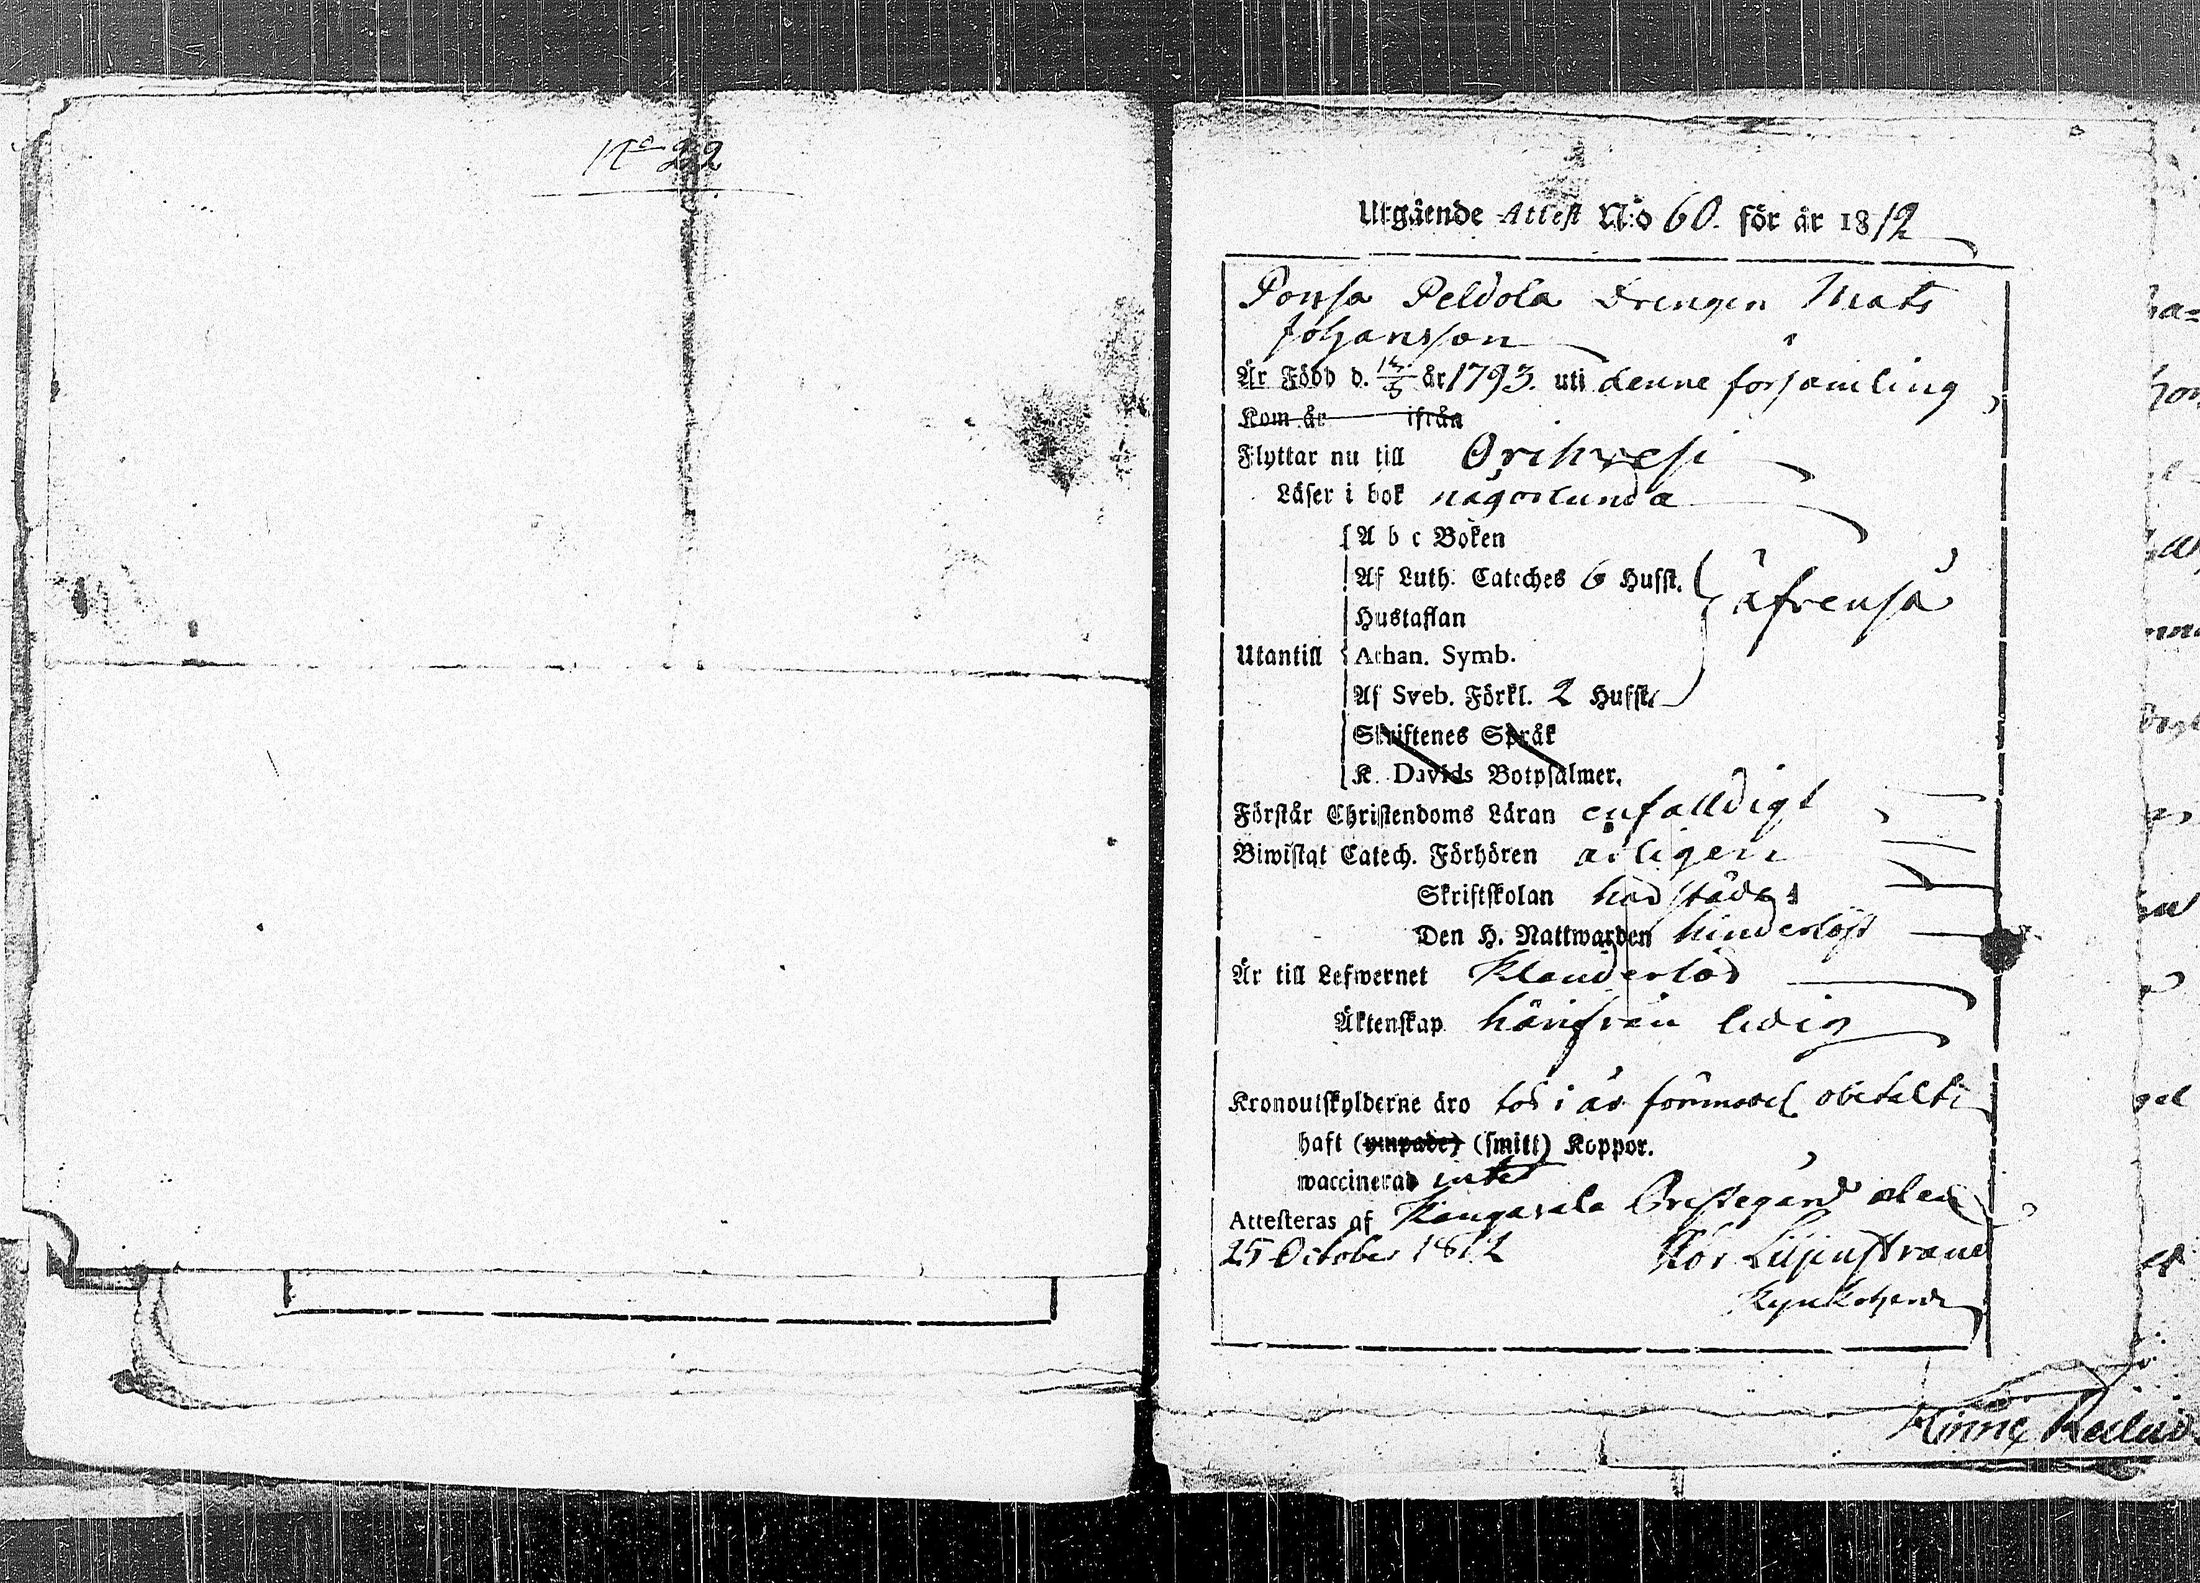 No 22
Utgående Attest N:o 60. för år 1812
Ponsa Peldola Drengen Mats
Johansson
Är Född d. år 1793. uti denne församling
Kom år ifrån
Flyttar nu till Orihvesi
Läser i bok någorlunda
A b c Boken
Af Luth. Cateches 6 Hufst.
Hustaflan
åfvenså
Utantill Athan. Symb.
Af Sveb. Förkl. 2 Hufst.
Skriftenes Språk
K. Davids Botpsalmer.
Förstår Christendoms Läran enfalldigt
Biwistat Catech. Förhören årligen
Skriftskolan härstädes
Den H. Nattwarden hinderlöst
Är till Lefwernet Klanderlös
Äktenskap härifrån ledig
Kronoutskylderne äro för i år förmodel obetalte
haft (ympade) (smitt) Koppor.
waccinerad intet
Attesteras af Kangasala Prestegård den
25 October 1812 Liljenstrand